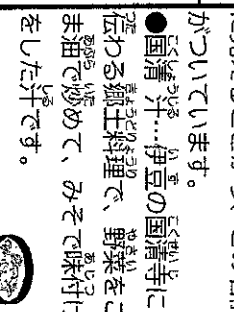 がついています。
●国清汁…伊豆の国清寺に
伝わる郷土料理で、野菜をご
ま油で炒めて、みそで味付け
をした汁です。